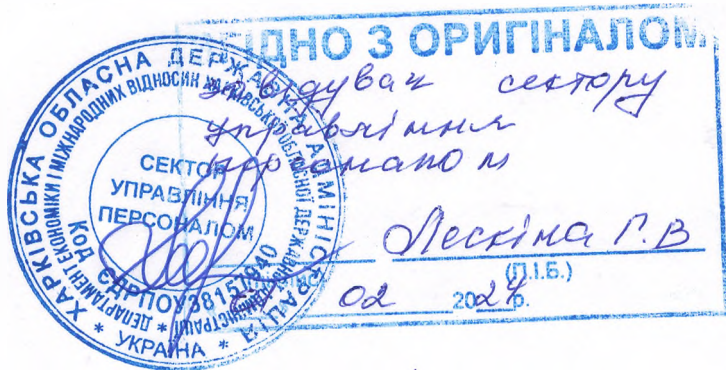 ЗГІДНО З ОРИГІНАЛОМ
Завідувач сектору
управління
персоналом
Лескіна Г.В
(П.І.Б.)
02 2024р.
ХАРКІВСЬКА ОБЛАСНА ДЕРЖАВНА АДМІНІСТРАЦІЯ
* УКРАЇНА *
ДЕПАРТАМЕНТ ЕКОНОМІКИ І МІЖНАРОДНИХ ВІДНОСИН ХАРКІВСЬКОЇ ОБЛАСНОЇ ДЕРЖАВНОЇ АДМІНІСТРАЦІЇ *
СЕКТОР
УПРАВЛІННЯ
ПЕРСОНАЛОМ
Код
ЄДРПОУ